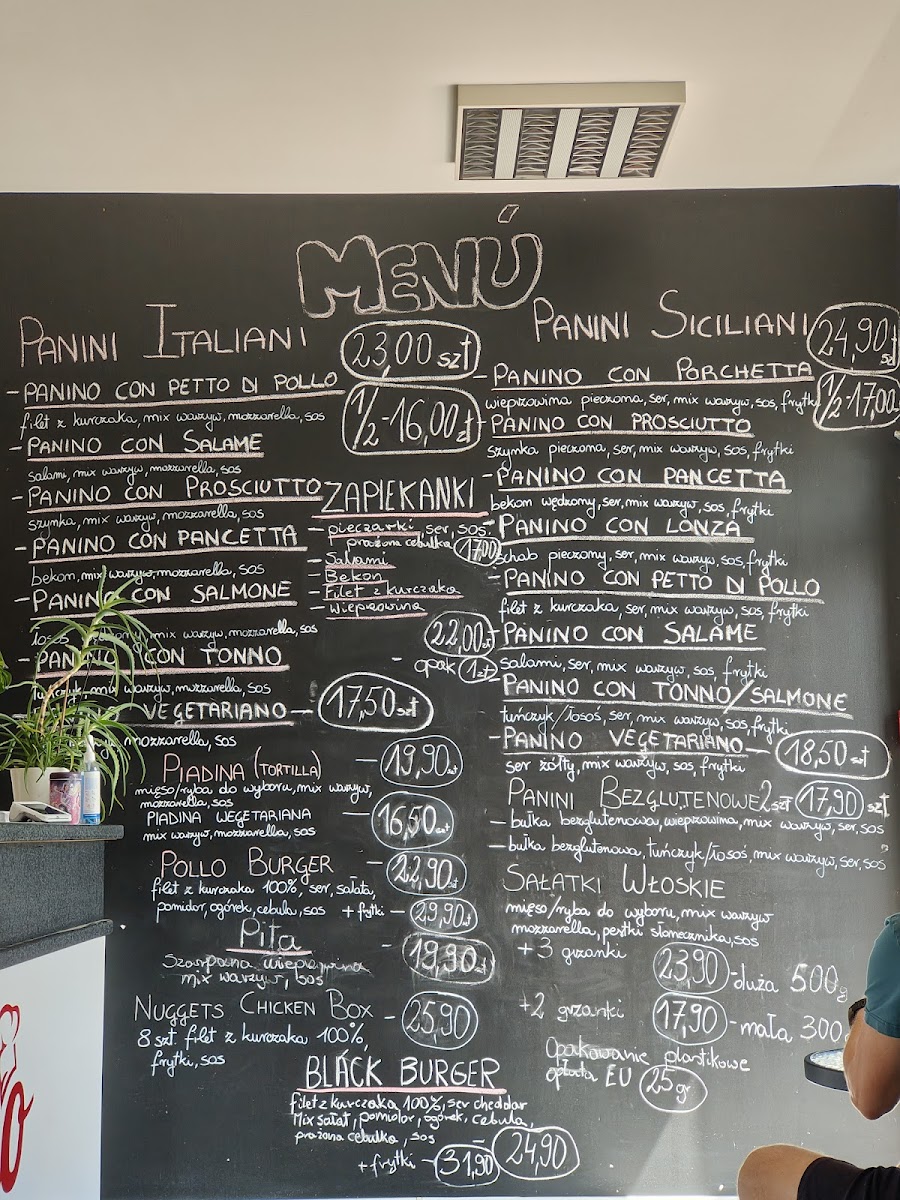 MENÚ
PANINI ITALIANI
23,00 szt
1/2 - 16,00 zł
- PANINO CON PETTO DI POLLO
filet z kurczaka, mix warzyw, mozzarella, sos
- PANINO CON SALAME
salami, mix warzyw, mozzarella, sos
- PANINO CON PROSCIUTTO
szynka, mix warzyw, mozzarella, sos
- PANINO CON PANCETTA
bekon, mix warzyw, mozzarella, sos
- PANINO CON SALMONE
łosoś mix warzyw, mozzarella, sos
- PANINO CON TONNO
mix warzyw, mozzarella, sos
VEGETARIANO - 17,50 szt
mozzarella, sos
PIADINA (TORTILLA) - 19,90 zł
mięso/ryba do wyboru, mix warzyw,
mozzarella, sos
PIADINA WEGETARIANA - 16,50 zł
mix warzyw, mozzarella, sos
POLLO BURGER - 22,90 zł
filet z kurczaka 100%, ser, sałata,
pomidor, ogórek, cebula, sos + frytki - 29,90 zł
PITA - 19,90 zł
szarpana wieprzowina
mix warzyw, sos
NUGGETS CHICKEN BOX - 25,90
8 szt. filet z kurczaka 100%,
frytki, sos
ZAPIEKANKI
- pieczarki, ser, sos,
prażona cebulka 17,00
- Salami
- Bekon
- Filet z kurczaka
- Wieprzowina
22,00 zł
- opak 1 zł
BLACK BURGER
filet z kurczaka 100%, ser cheddar
Mix sałat, pomidor, ogórek, cebula,
prażona cebulka, sos - 24,90
+ frytki - 31,90
PANINI SICILIANI
24,90 szt
1/2 - 17,00
- PANINO CON PORCHETTA
wieprzowina pieczona, ser, mix warzyw, sos, frytki
- PANINO CON PROSCIUTTO
szynka pieczona, ser, mix warzyw, sos, frytki
- PANINO CON PANCETTA
bekon wędzony, ser, mix warzyw, sos, frytki
- PANINO CON LONZA
schab pieczony, ser, mix warzyw, sos, frytki
- PANINO CON PETTO DI POLLO
filet z kurczaka, ser, mix warzyw, sos, frytki
- PANINO CON SALAME
salami, ser, mix warzyw, sos, frytki
PANINO CON TONNO/SALMONE
- tuńczyk/łosoś, ser, mix warzyw, sos, frytki
- PANINO VEGETARIANO - 18,50 szt
ser żółty, mix warzyw, sos, frytki
PANINI BEZGLUTENOWE 2szt 17,90 szt
- bułka bezglutenowa, wieprzowina, mix warzyw, ser, sos
- bułka bezglutenowa, tuńczyk/łosoś, mix warzyw, ser, sos
SAŁATKI WŁOSKIE
mięso/ryba do wyboru, mix warzyw
mozzarella, pestki słonecznika, sos
+ 3 grzanki 23,90 - duża 500g
+ 2 grzanki 17,90 - mała 300
Opakowanie plastikowe
opłata EU 25 gr